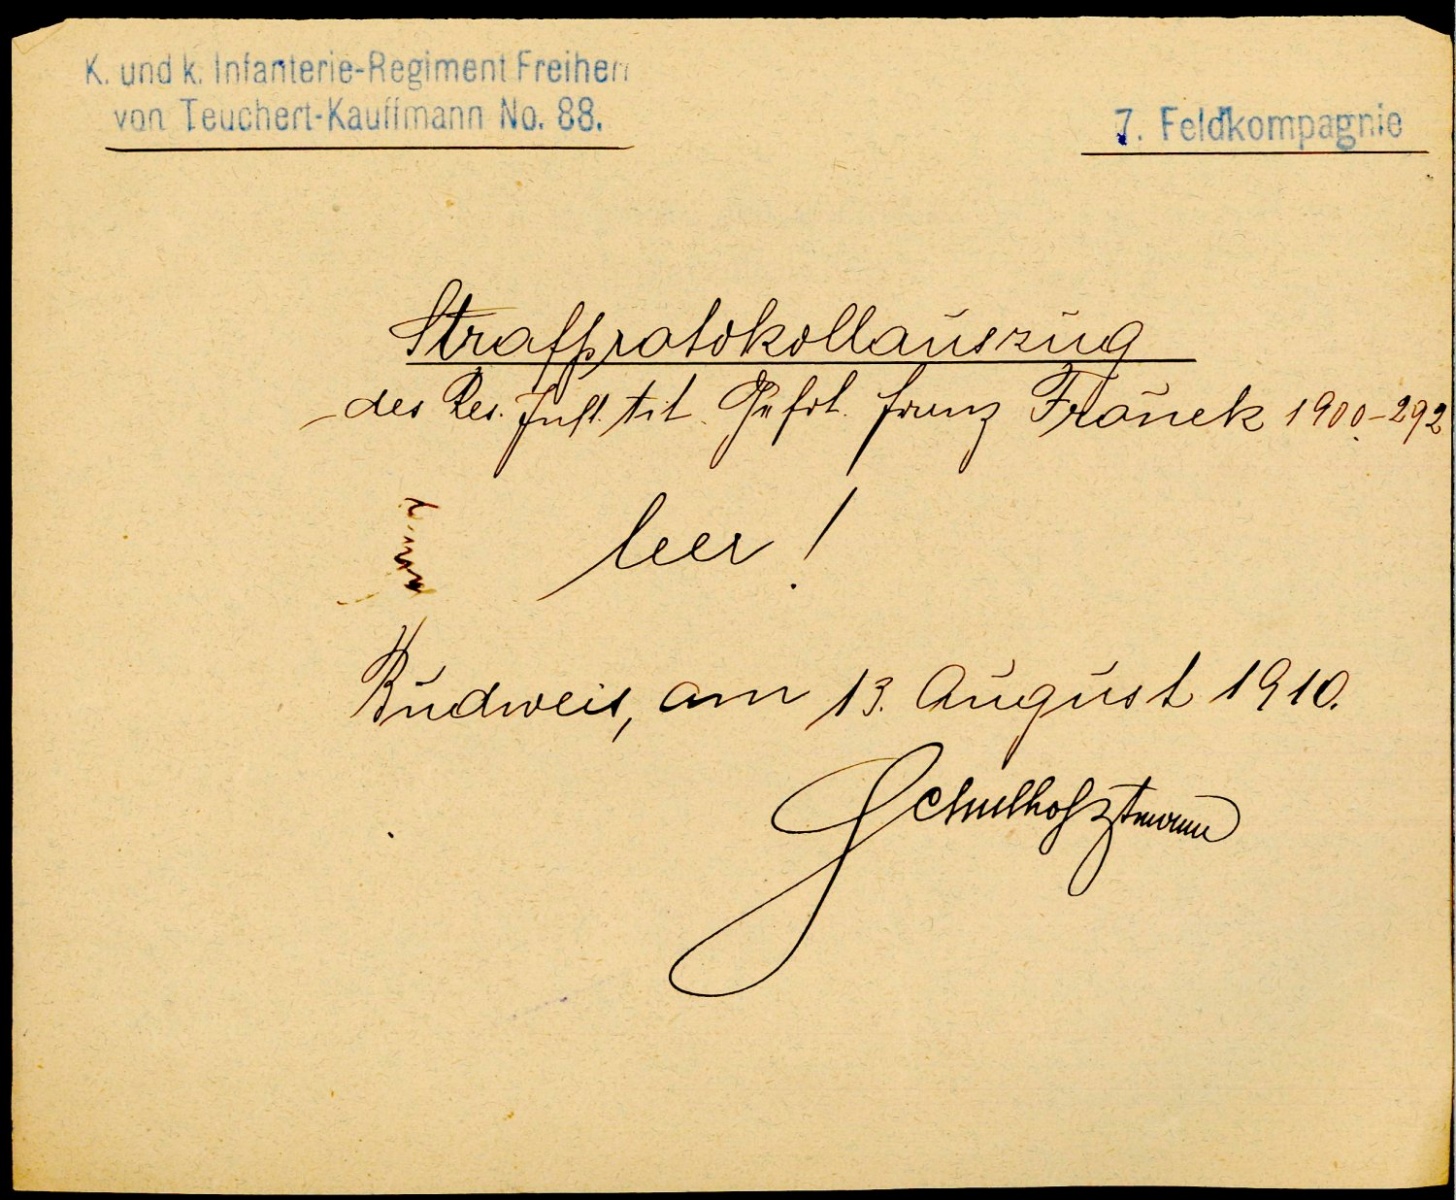 K. und k. Infanterie-Regiment Freiherr
von Teuchert-Kauffmann No. 88.
7. Feldkompagnie
Strafprotokollauszug
des Res. Inft. tit. Gefrt. Franz Franek 1900-292
leer!
Budweis, am 13. August 1910.